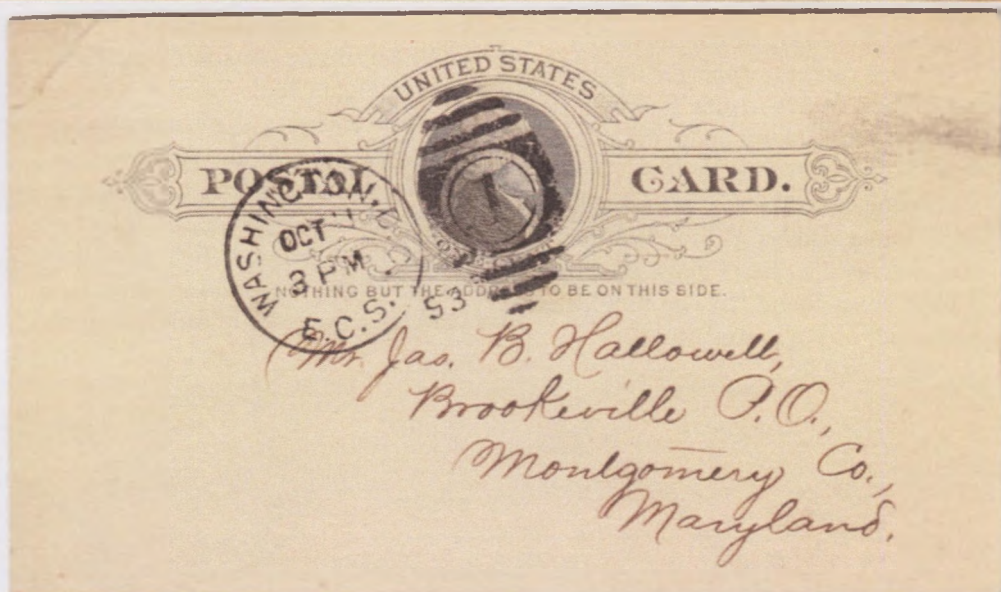 UNITED STATES
POSTAL CARD.
ONE CENT
WASHINGTON, D.C.
OCT
3 PM
E.C.S.
53
1
NOTHING BUT THE ADDRESS TO BE ON THIS SIDE.
Mr. Jas. B. Hallowell,
Brookeville P.O.,
Montgomery Co.,
Maryland.